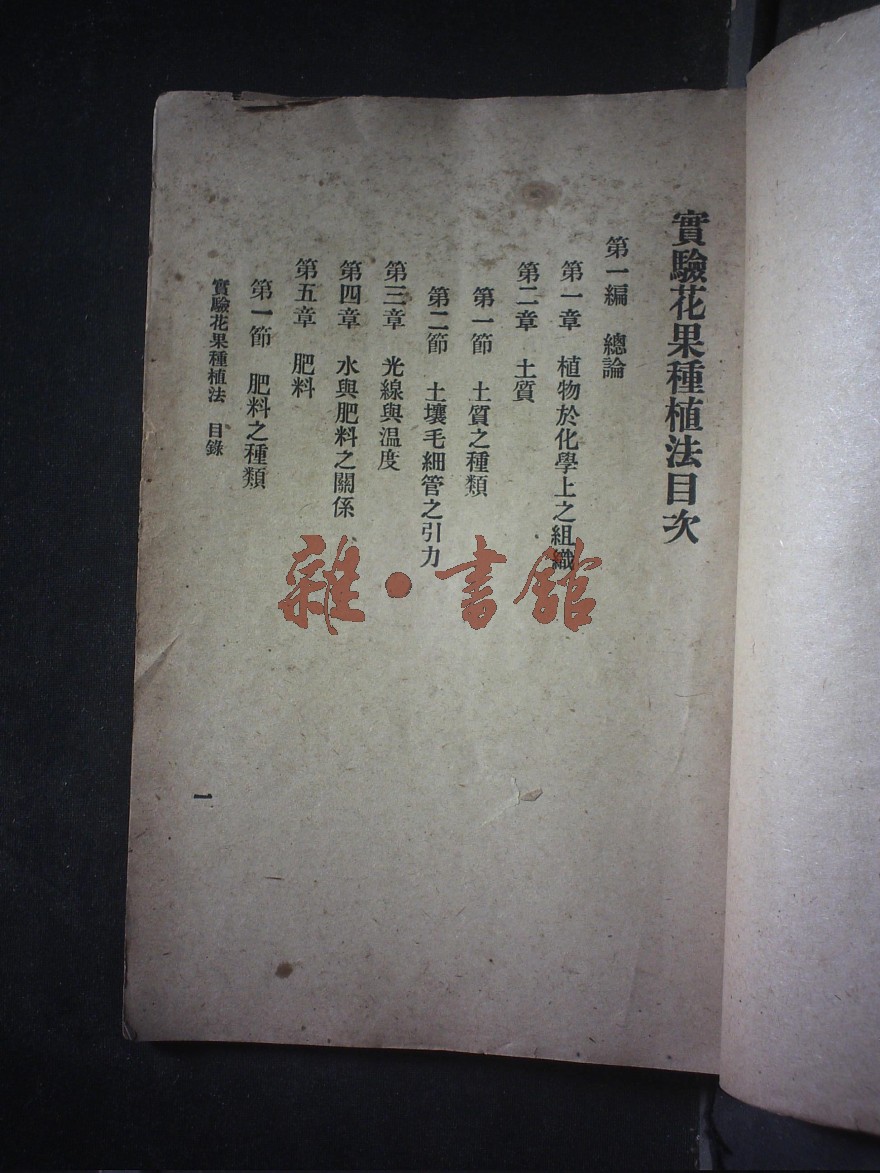 實驗花果種植法目次
第一編 總論
第一章 植物於化學上之組織
第二章 土質
第一節 土質之種類
第二節 土壤毛細管之引力
第三章 光線與温度
第四章 水與肥料之關係
第五章 肥料
第一節 肥料之種類
實驗花果種植法 目錄
一
雜·書館